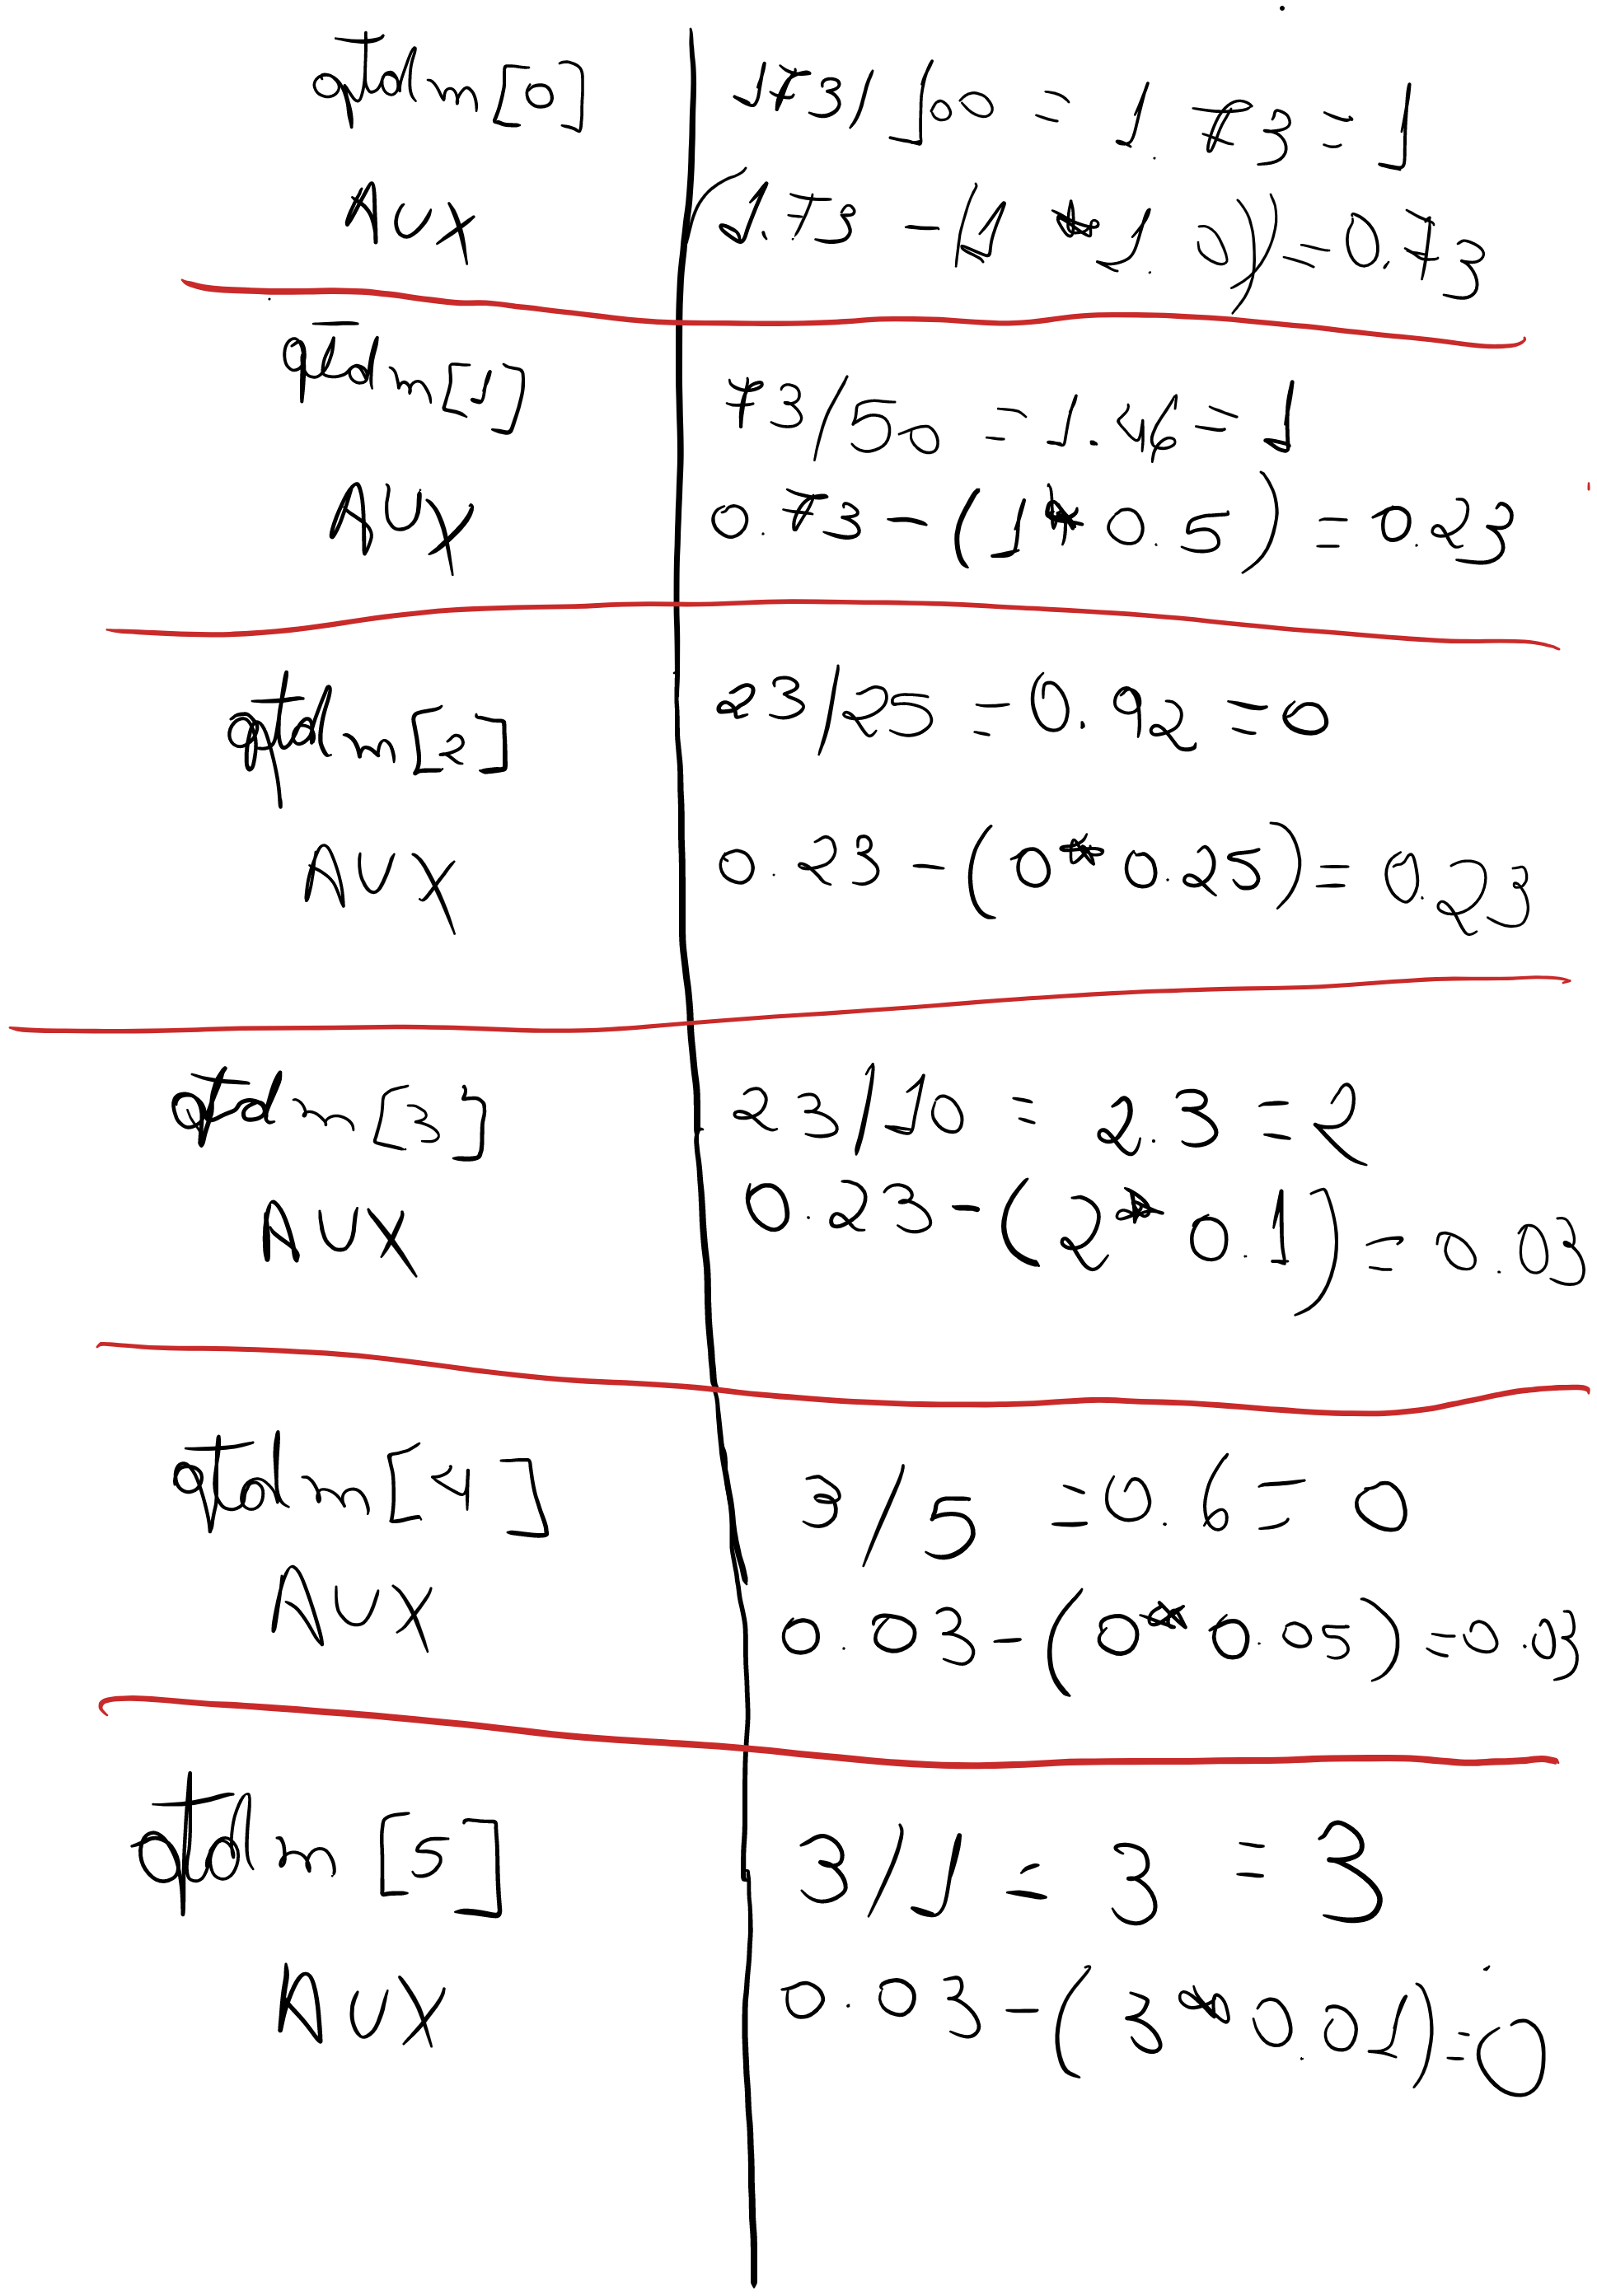 qtdm[0] 173/100 = 1.73 = 1
AUX (1.73 - (1 * 1.0)) = 0.73
qtdm[1] 73/50 = 1.46 = 1
AUX 0.73 - (1 * 0.5) = 0.23
qtdm[2] 23/25 = 0.92 = 0
AUX 0.23 - (0 * 0.25) = 0.23
qtdm[3] 23/10 = 2.3 = 2
AUX 0.23 - (2 * 0.1) = 0.03
qtdm[4] 3/5 = 0.6 = 0
AUX 0.03 - (0 * 0.05) = 0.03
qtdm[5] 3/1 = 3 = 3
AUX 0.03 - (3 * 0.01) = 0